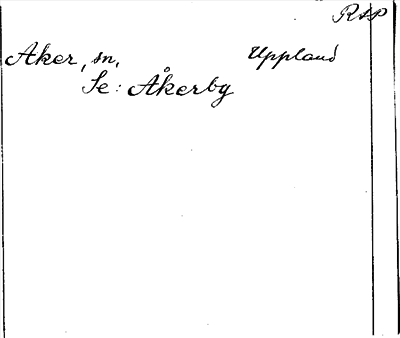 RSP
Aker, sn. Uppland
Se: Åkerby